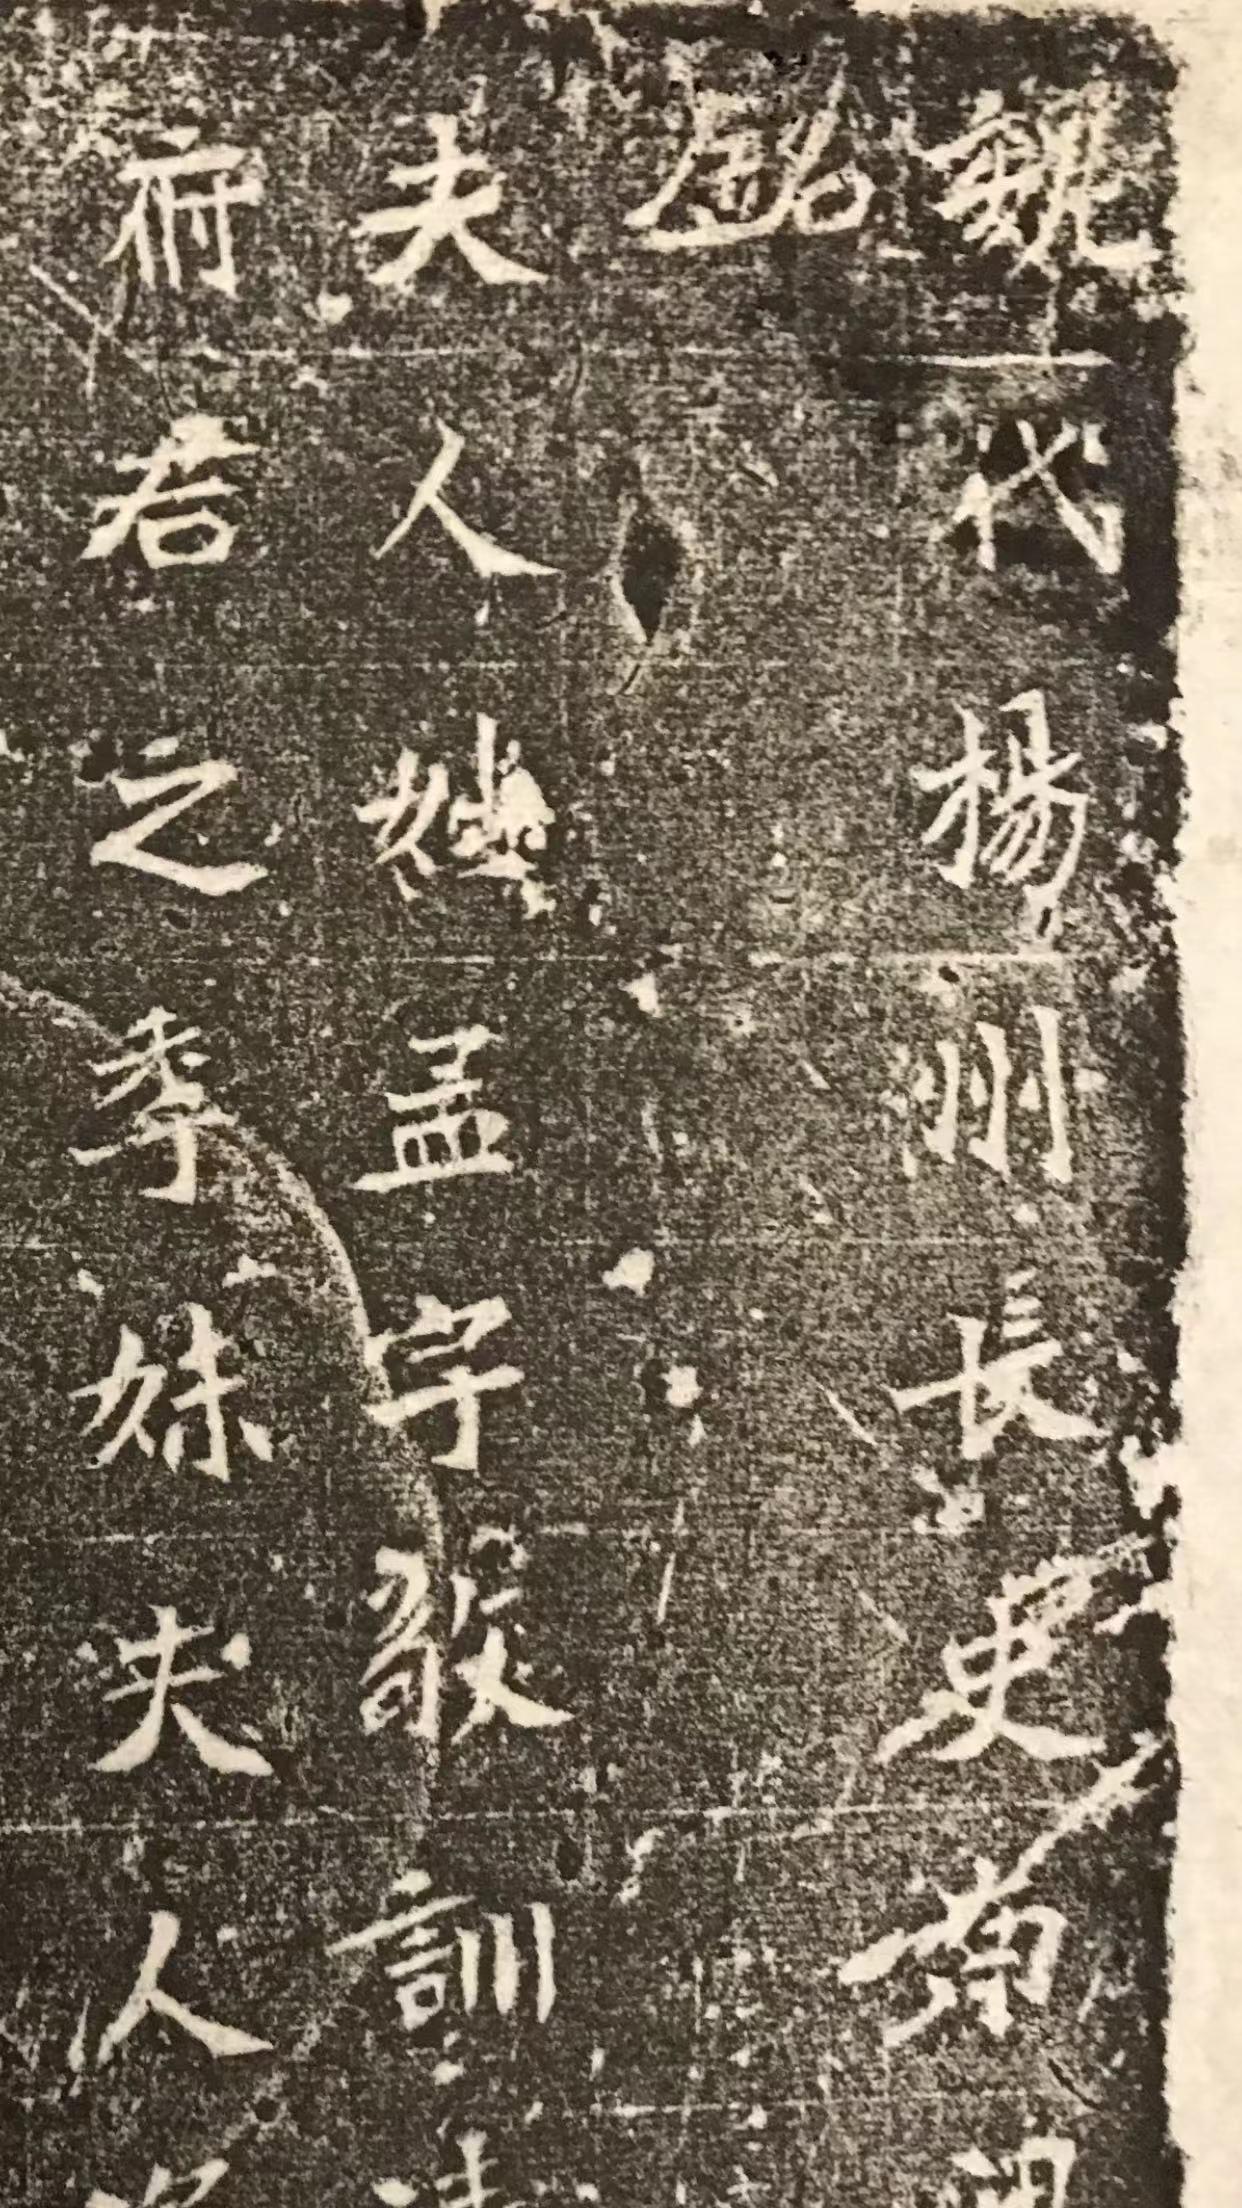 魏代楊州長史南
銘
夫人姓孟字敬訓
府君之季妹夫人